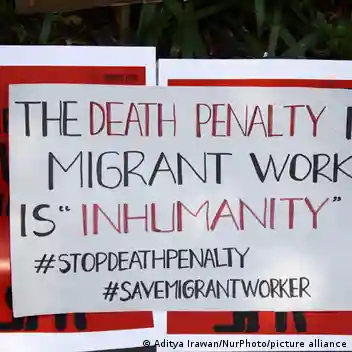 THE DEATH PENALTY
MIGRANT WORK
IS "INHUMANITY"
#STOPDEATHPENALTY
#SAVEMIGRANTWORKER
© Aditya Irawan/NurPhoto/picture alliance